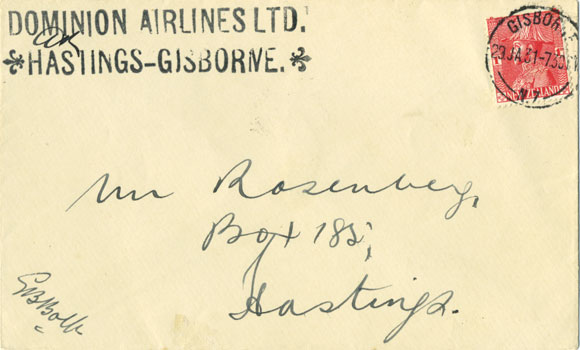 DOMINION AIRLINES LTD.
HASTINGS-GISBORNE.
GISBORNE
29 JA.31-7.30
N.Z
NEW ZEALAND
Mr Rosenberg,
Box 185,
Hastings.